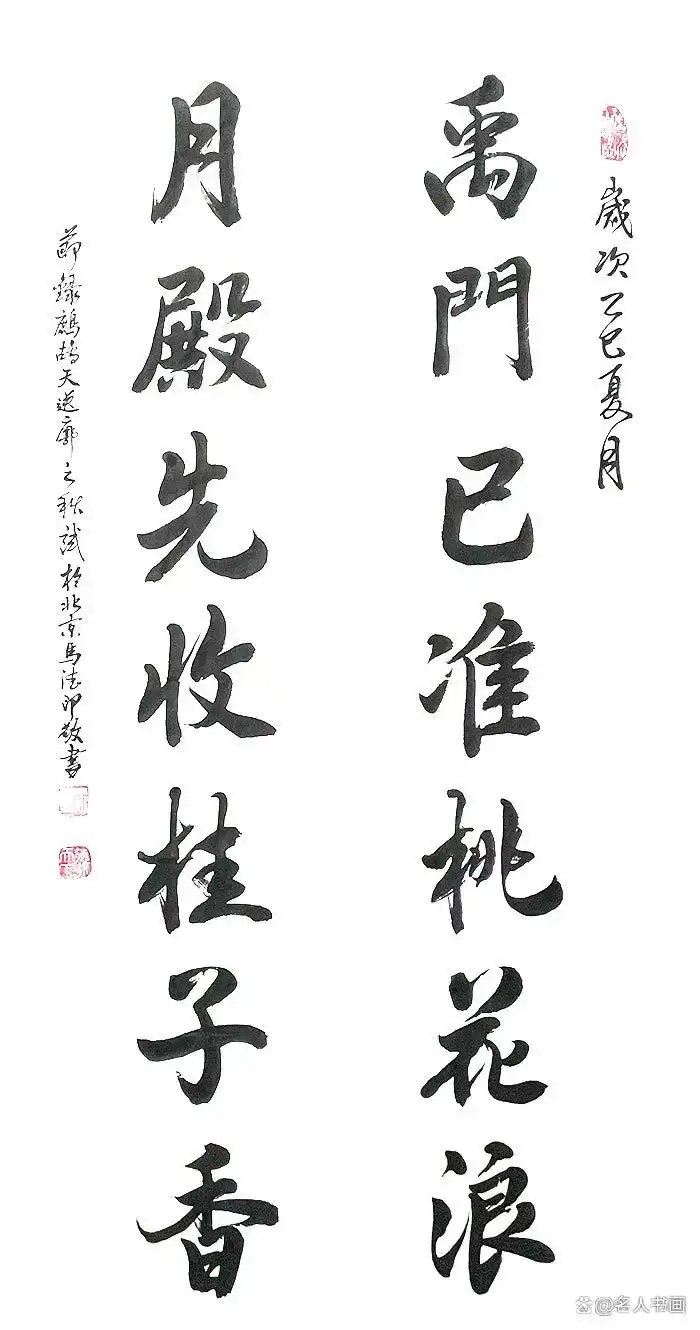 歲次乙巳夏月
禹門已准桃花浪
月殿先收桂子香
節録鷓鴣天送廓之秋試於北京馬德印敬書
@名人书画